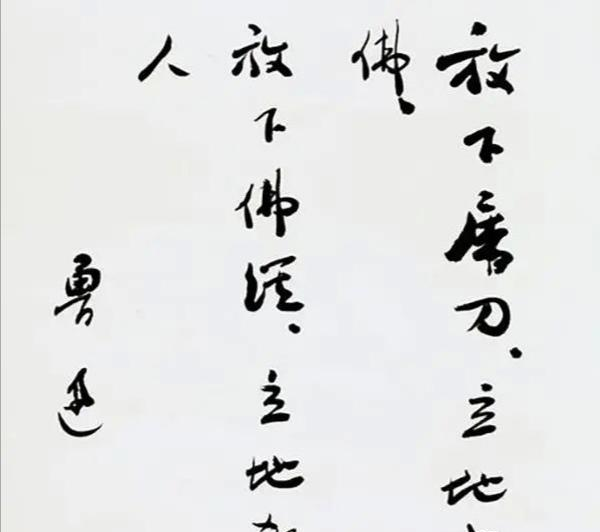 放下屠刀、立地
佛、
放下佛经、立地
人
鲁迅